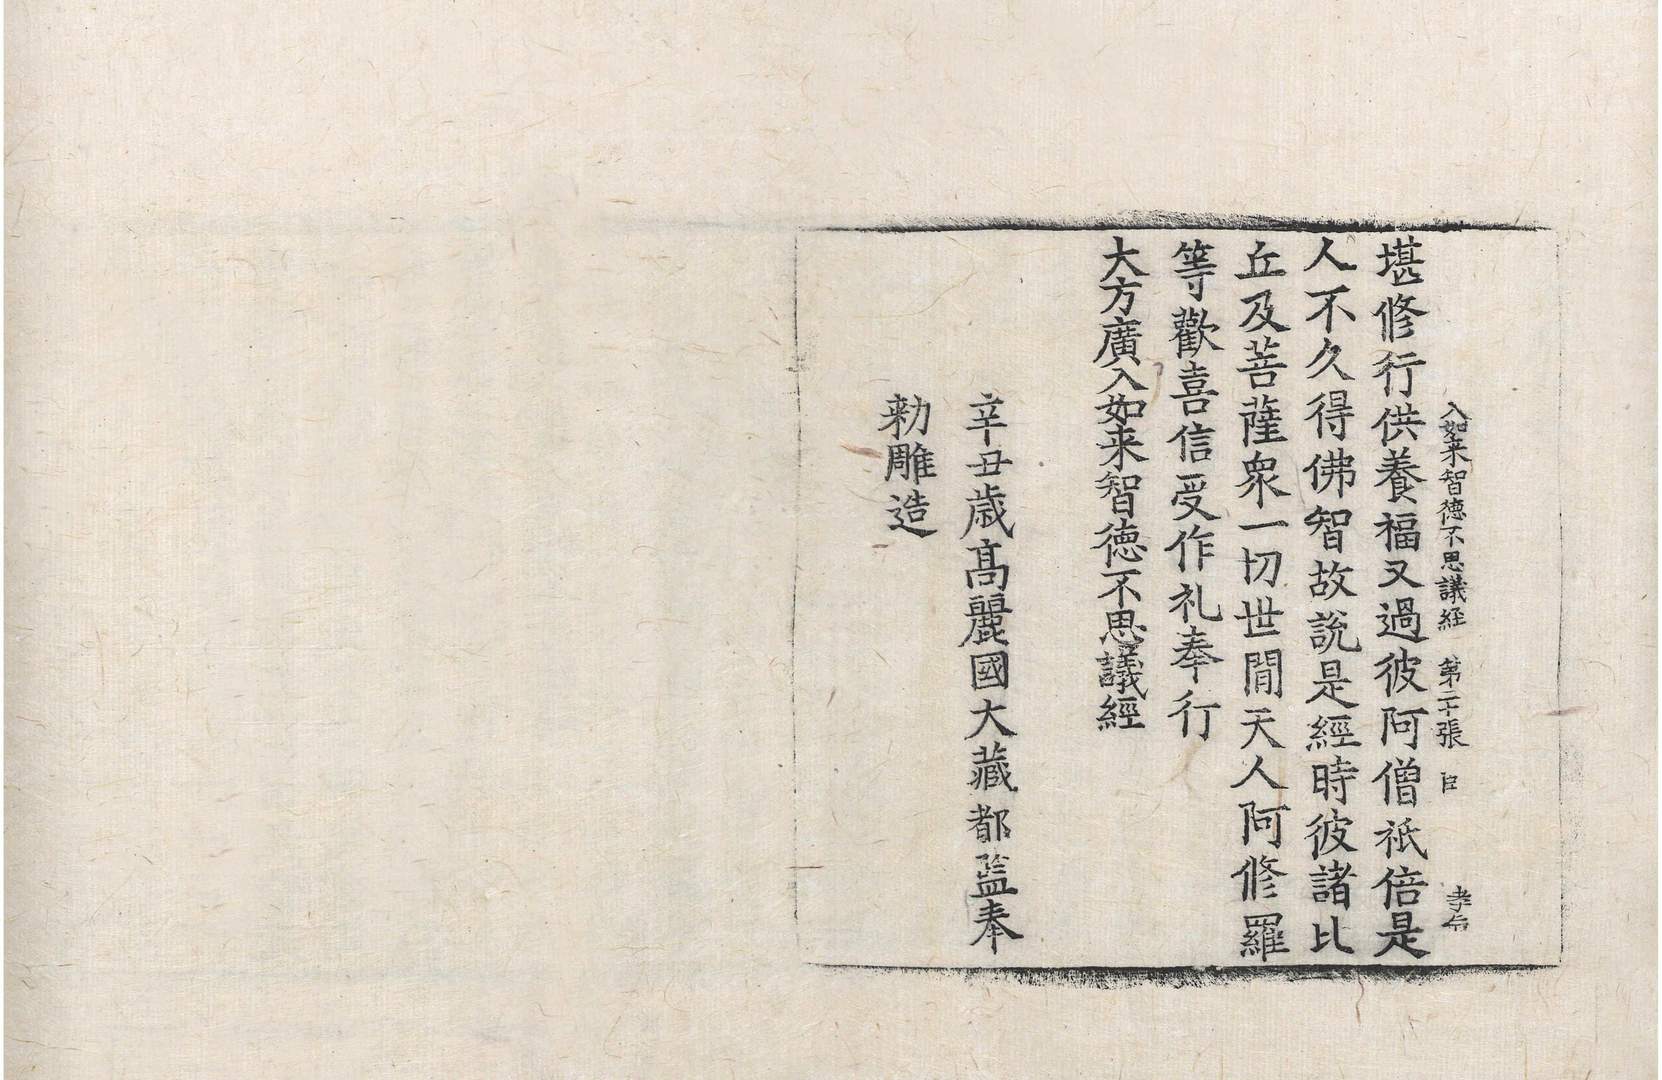 入如来智德不思議経 第二十張 臣 孝
堪修行供養福又過彼阿僧祇倍是
人不久得佛智故說是經時彼諸比
丘及菩薩衆一切世間天人阿修羅
等歡喜信受作礼奉行
大方廣入如来智德不思議經
辛丑歲高麗國大藏都監奉
勅雕造